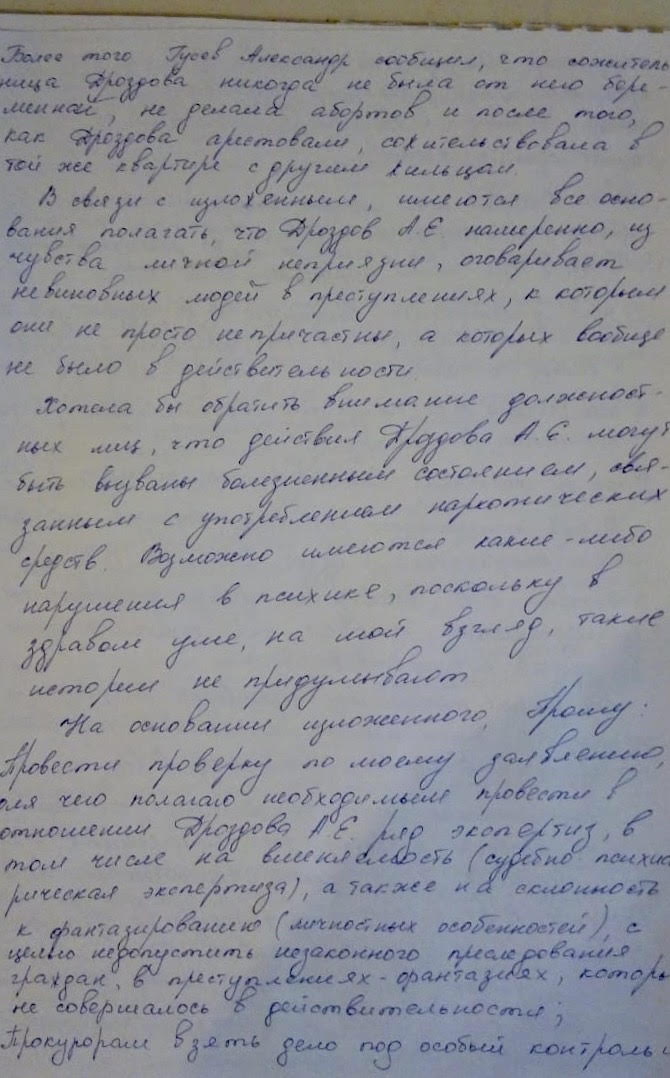 Более того Гусев Александр сообщил, что сожитель-
ница Дроздова никогда не была от него бере-
менной, не делала абортов и после того,
как Дроздова арестовали, сожительствовала в
той же квартире с другим жильцом.
В связи с изложенным, имеются все осно-
вания полагать, что Дроздов А.Е. намеренно, из
чувства личной неприязни, оговаривает
невиновных людей в преступлениях, к которым
они не просто непричастны, а которых вообще
не было в действительности.
Хотела бы обратить внимание должност-
ных лиц, что действия Дроздова А.Е. могут
быть вызваны болезненным состоянием, свя-
занным с употреблением наркотических
средств. Возможно имеются какие-либо
нарушения в психике, поскольку в
здравом уме, на мой взгляд, такие
истории не придумывают
На основании изложенного, Прошу:
Провести проверку по моему заявлению,
для чего полагаю необходимым провести в
отношении Дроздова А.Е. ряд экспертиз, в
том числе на вменяемость (судебно психиа
рическая экспертиза), а также на склонность
к фантазированию (личностных особенностей), с
целью недопустить незаконного преследования
граждан, в преступлениях-фантазиях, которы
не совершалось в действительности;
Прокурорам взять дело под особый контроль и